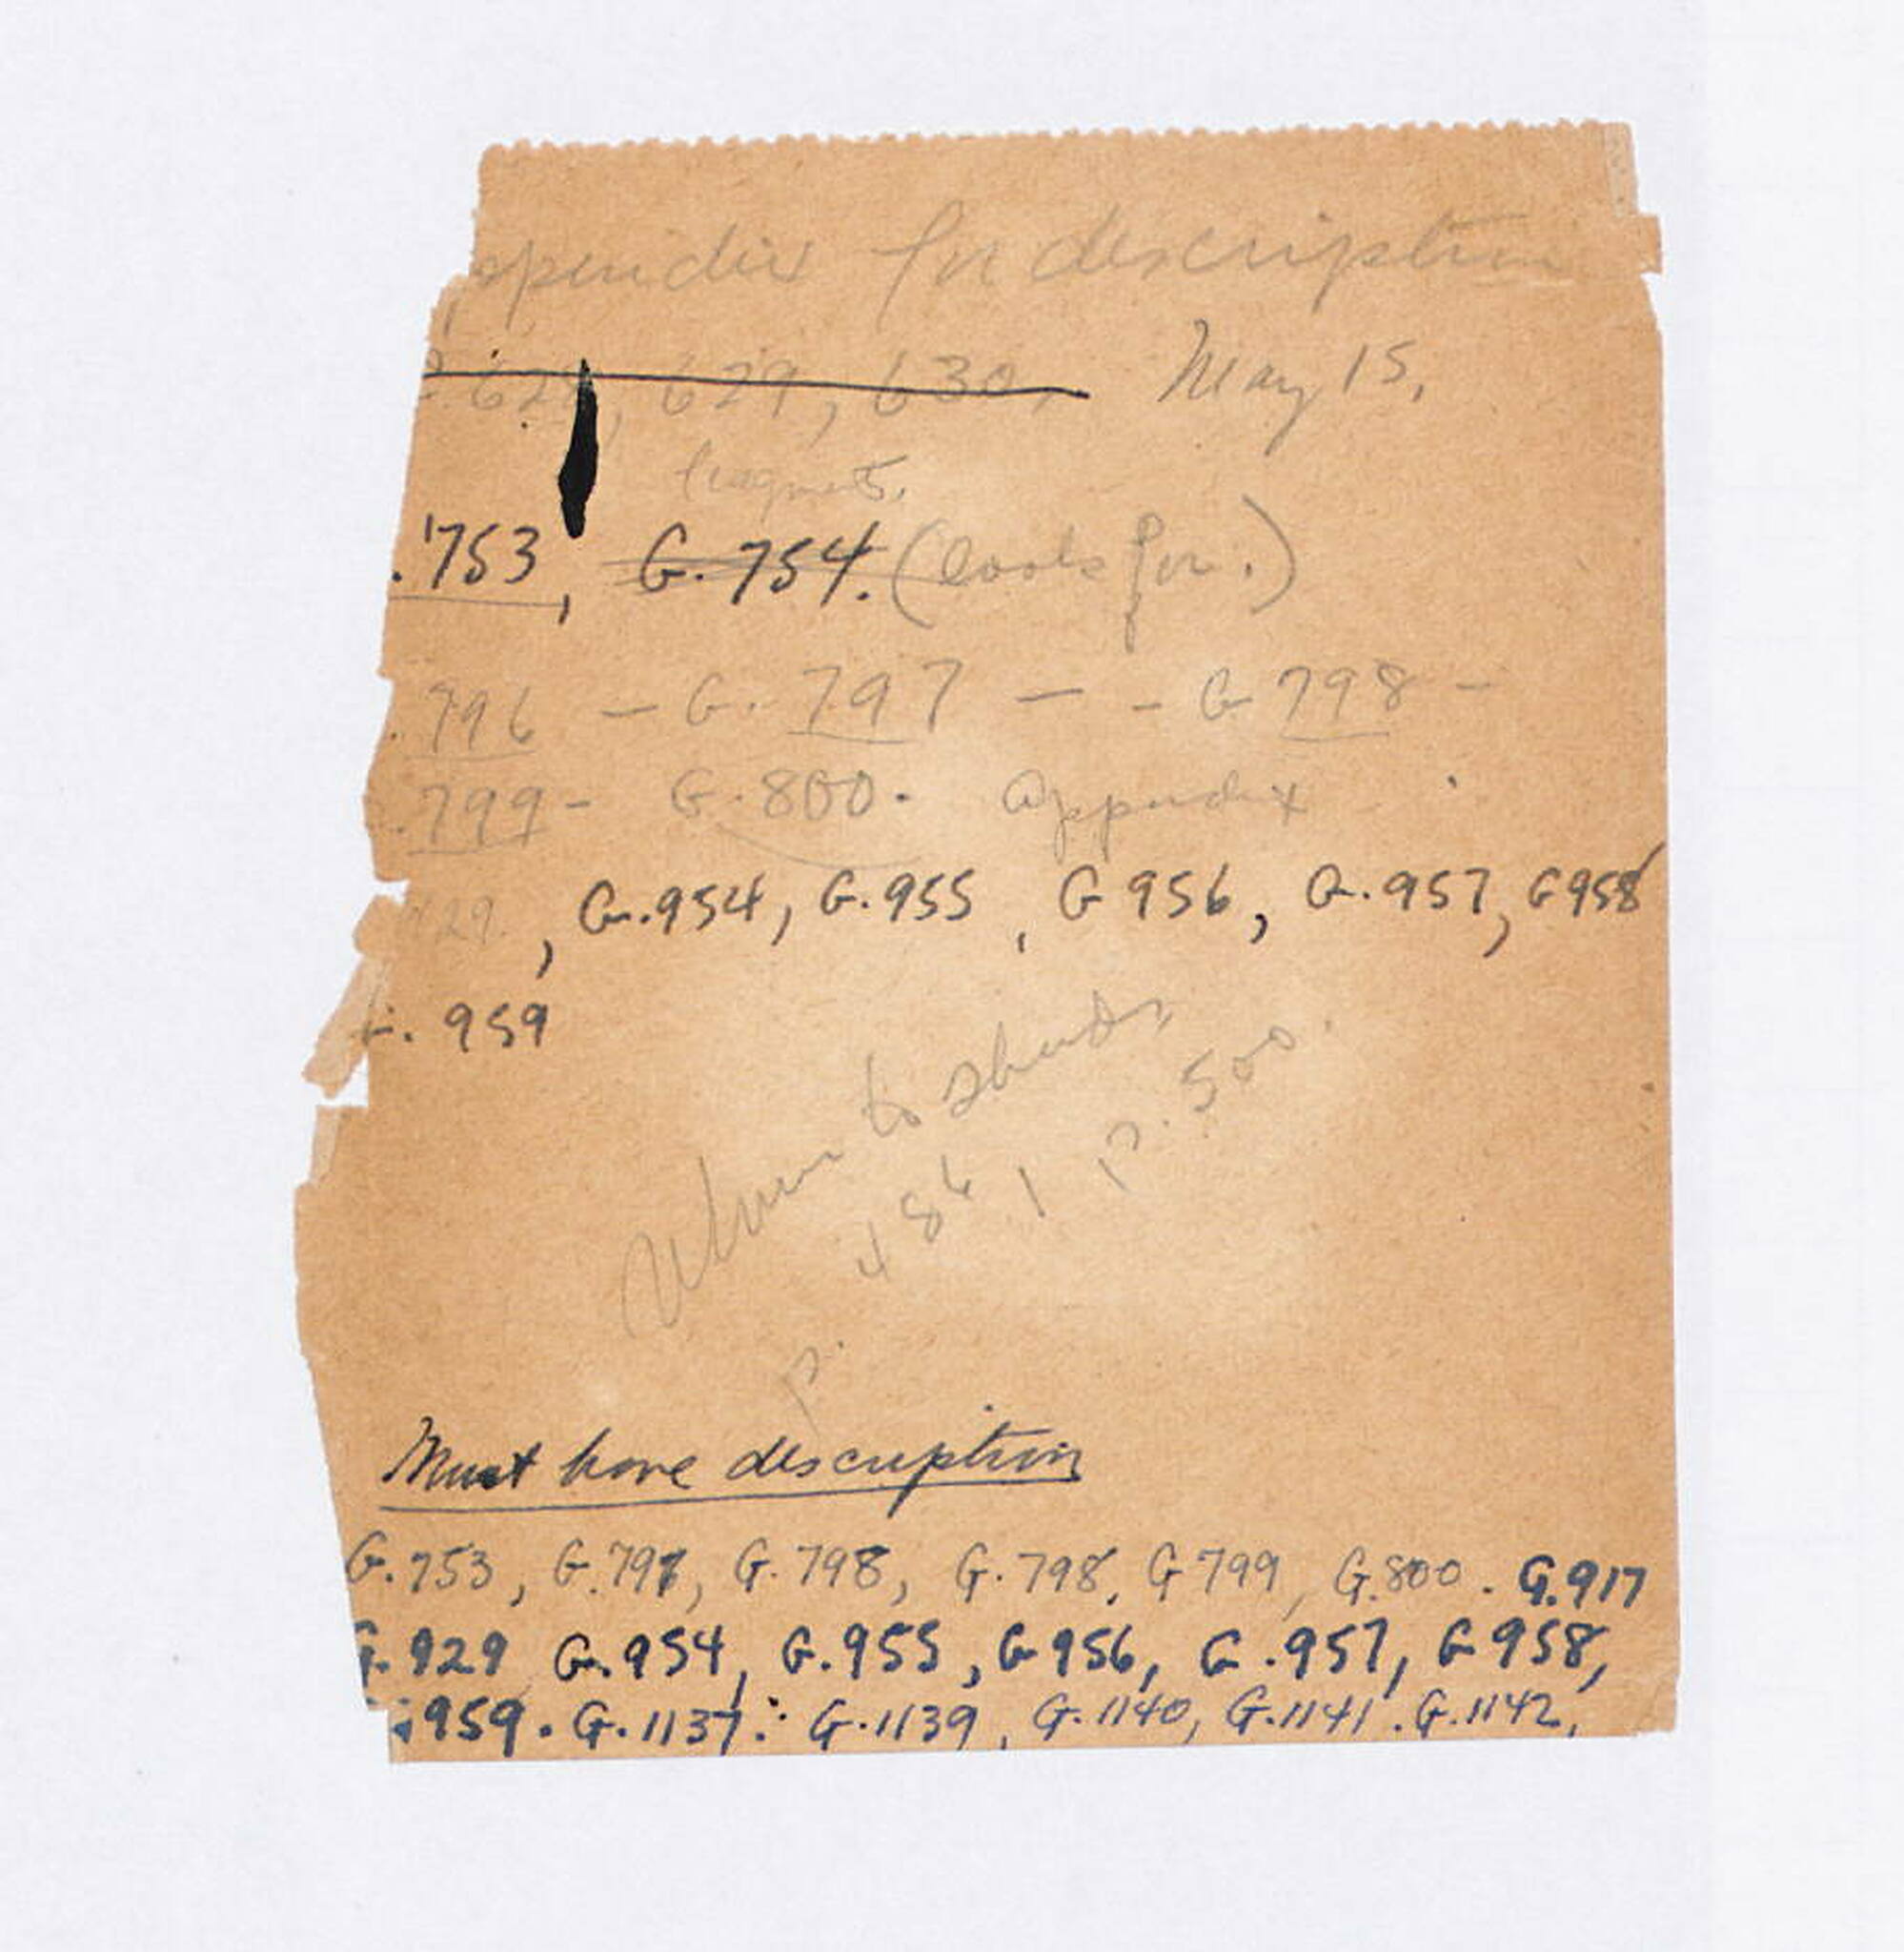 ppendix for description
628, 629, 630, May 15,
.753, G.754. (look for.)
.796 - G. 797 - - G 798 -
.799 - G.800. Appendix
929. , G.954, G.955, G 956, G.957, G958
G. 959
to
p. 486, p. 500.
Must have description
G.753, G.797, G.798, G.798, G 799, G.800. G.917
G.929 G.954, G.955, G 956, G.957, G 958,
959. G.1137. G.1139, G.1140, G.1141. G.1142,